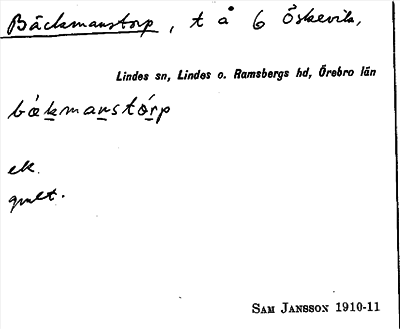 Bäckmanstorp, t å 6 Öskevik,
Lindes sn, Lindes o. Ramsbergs hd, Örebro län
bækmanstórp
ek.
SAM JANSSON 1910-11